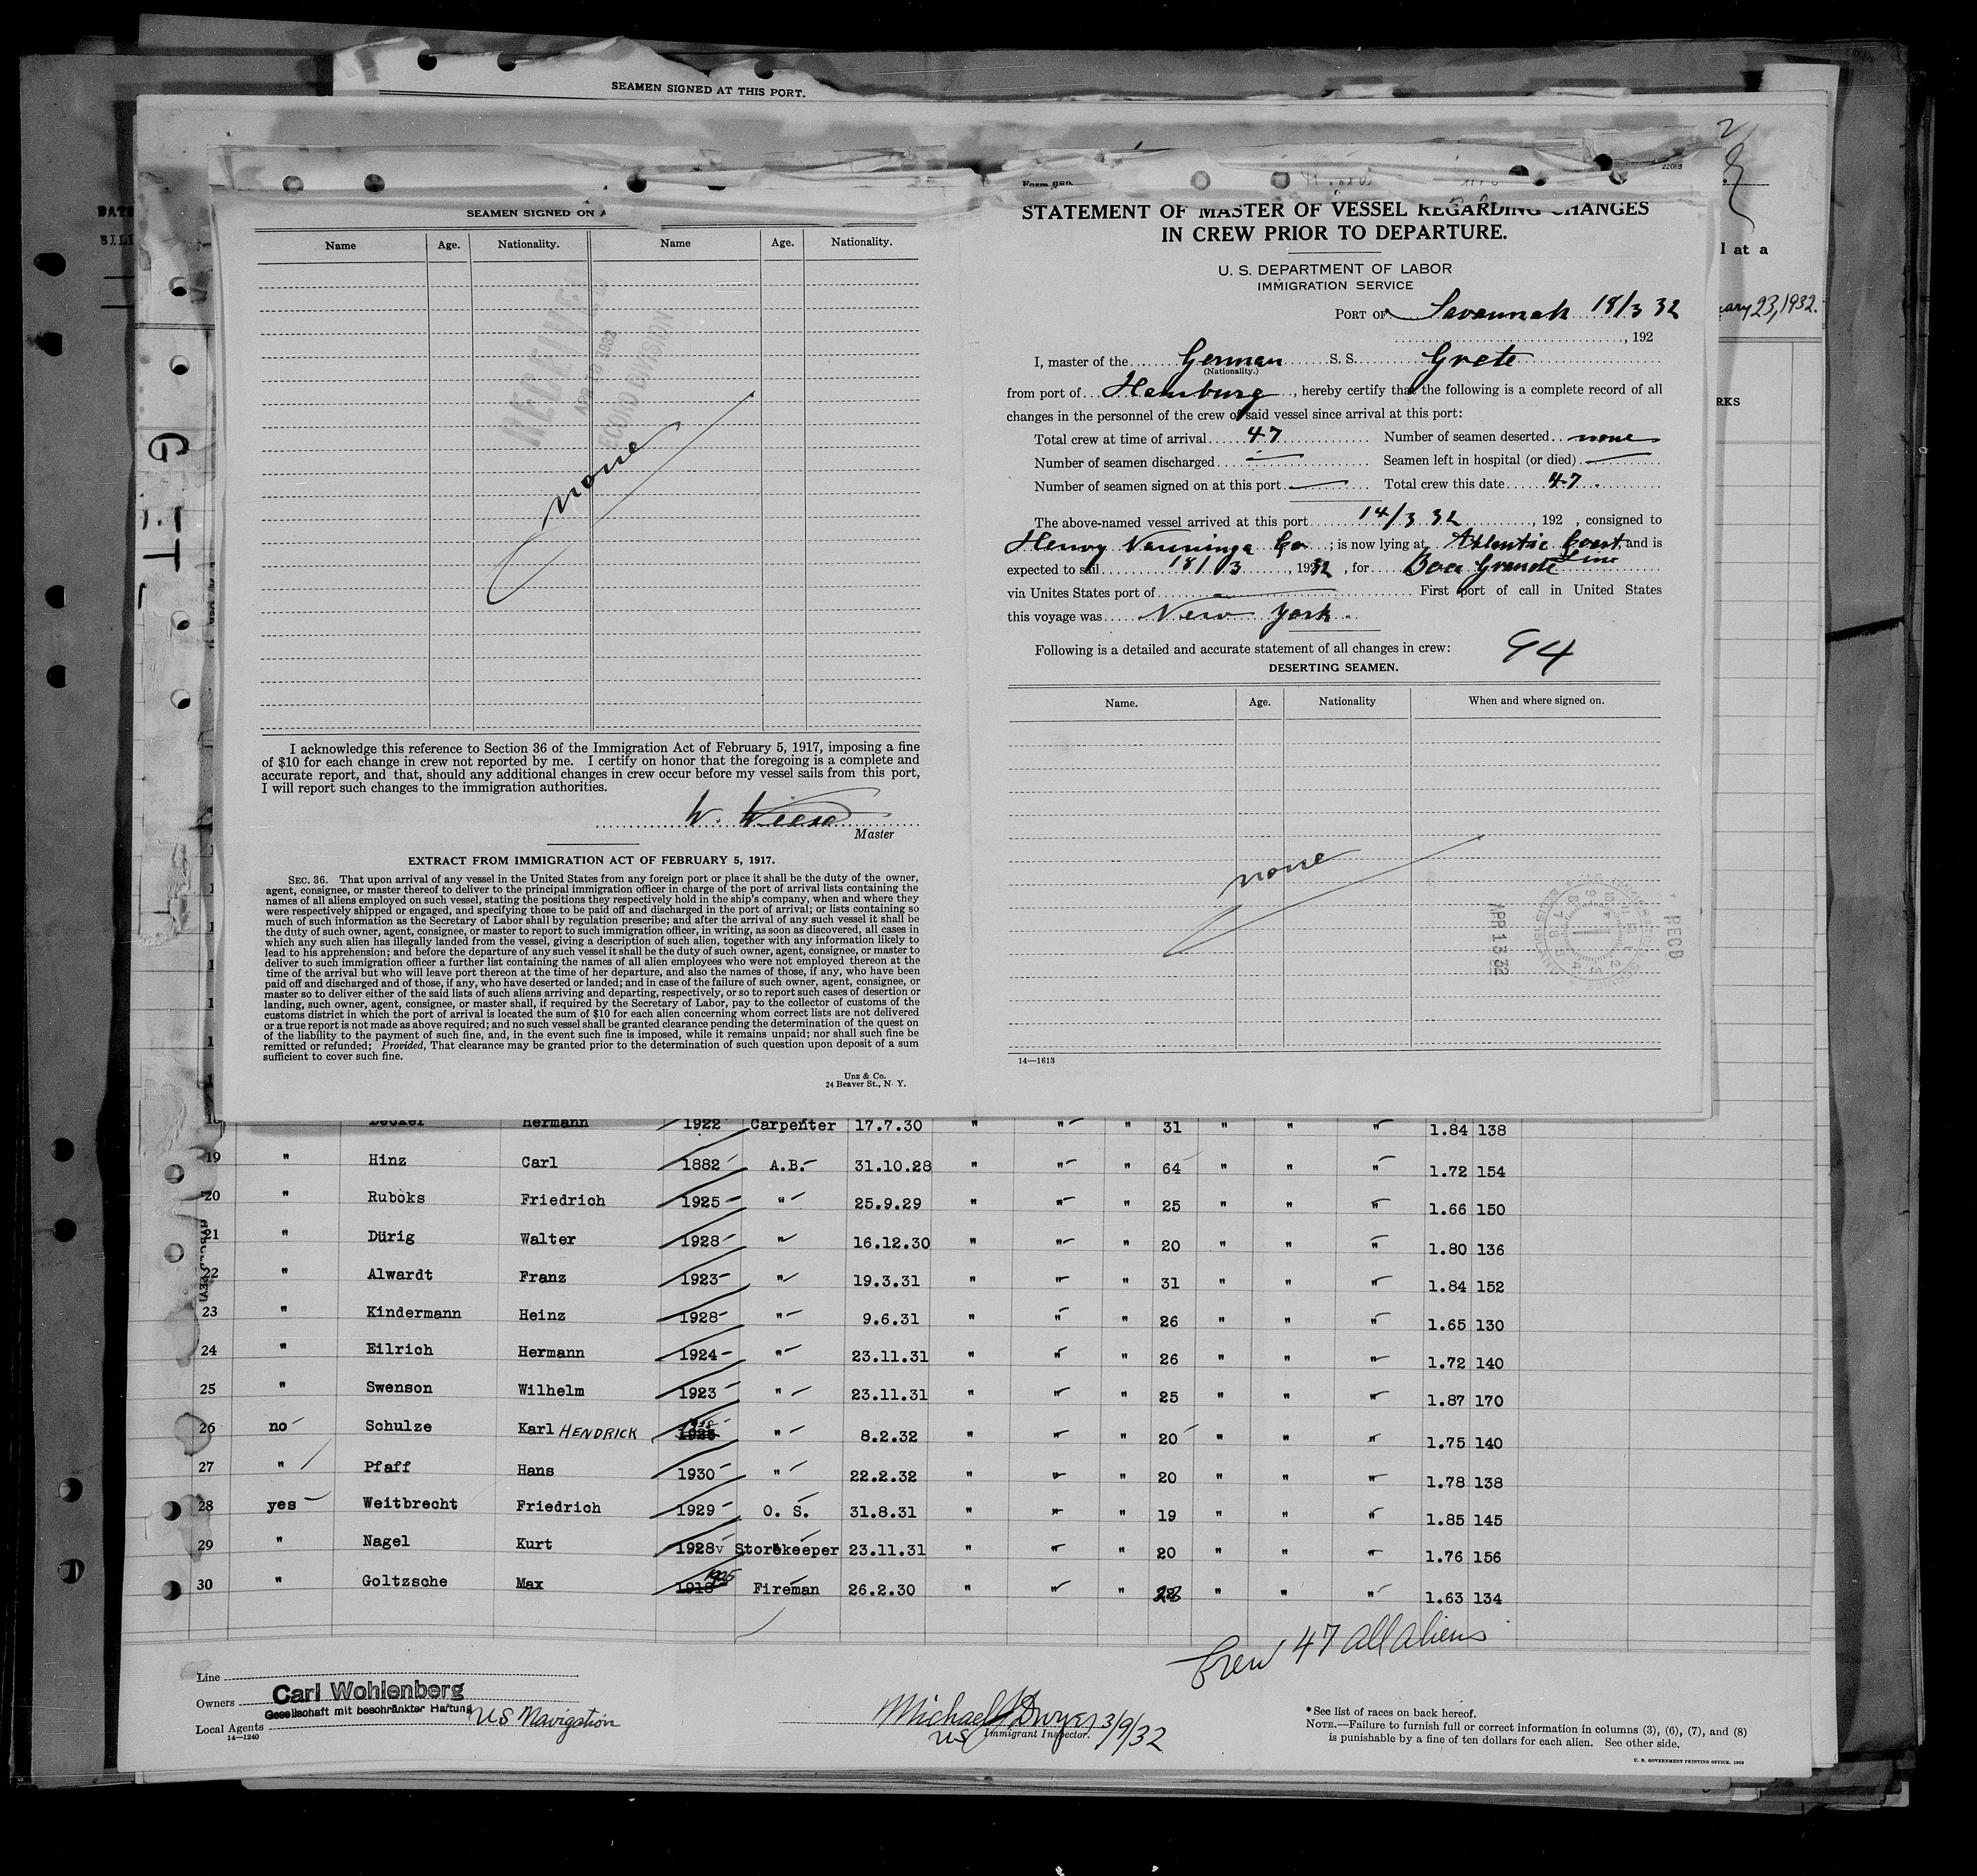 SEAMEN SIGNED AT THIS PORT.
SEAMEN SIGNED ON
Name Age. Nationality. Name Age. Nationality.
RECEIVED
APR 18 1932
RECORD DIVISION
none
I acknowledge this reference to Section 36 of the Immigration Act of February 5, 1917, imposing a fine
of $10 for each change in crew not reported by me. I certify on honor that the foregoing is a complete and
accurate report, and that, should any additional changes in crew occur before my vessel sails from this port,
I will report such changes to the immigration authorities.
W. Wiese
Master
EXTRACT FROM IMMIGRATION ACT OF FEBRUARY 5, 1917.
SEC. 36. That upon arrival of any vessel in the United States from any foreign port or place it shall be the duty of the owner,
agent, consignee, or master thereof to deliver to the principal immigration officer in charge of the port of arrival lists containing the
names of all aliens employed on such vessel, stating the positions they respectively hold in the ship's company, when and where they
were respectively shipped or engaged, and specifying those to be paid off and discharged in the port of arrival; or lists containing so
much of such information as the Secretary of Labor shall by regulation prescribe; and after the arrival of any such vessel it shall be
the duty of such owner, agent, consignee, or master to report to such immigration officer, in writing, as soon as discovered, all cases in
which any such alien has illegally landed from the vessel, giving a description of such alien, together with any information likely to
lead to his apprehension; and before the departure of any such vessel it shall be the duty of such owner, agent, consignee, or master to
deliver to such immigration officer a further list containing the names of all alien employees who were not employed thereon at the
time of the arrival but who will leave port thereon at the time of her departure, and also the names of those, if any, who have been
paid off and discharged and of those, if any, who have deserted or landed; and in case of the failure of such owner, agent, consignee, or
master so to deliver either of the said lists of such aliens arriving and departing, respectively, or so to report such cases of desertion or
landing, such owner, agent, consignee, or master shall, if required by the Secretary of Labor, pay to the collector of customs of the
customs district in which the port of arrival is located the sum of $10 for each alien concerning whom correct lists are not delivered
or a true report is not made as above required; and no such vessel shall be granted clearance pending the determination of the quest on
of the liability to the payment of such fine, and, in the event such fine is imposed, while it remains unpaid; nor shall such fine be
remitted or refunded; Provided, That clearance may be granted prior to the determination of such question upon deposit of a sum
sufficient to cover such fine.
Unz & Co.
24 Beaver St., N. Y.
Form 689
STATEMENT OF MASTER OF VESSEL REGARDING CHANGES
IN CREW PRIOR TO DEPARTURE.
U. S. DEPARTMENT OF LABOR
IMMIGRATION SERVICE
PORT OF Savannah 18/3 32
, 192
I, master of the German S. S. Grete
(Nationality.)
from port of Hamburg, hereby certify that the following is a complete record of all
changes in the personnel of the crew of said vessel since arrival at this port:
Total crew at time of arrival 47 Number of seamen deserted none
Number of seamen discharged Seamen left in hospital (or died)
Number of seamen signed on at this port Total crew this date 47.
The above-named vessel arrived at this port 14/3 32, 192 , consigned to
Henry Nanninga Co ; is now lying at Atlantic Coast Line and is
expected to sail 18/3, 1932, for Boca Grande
via Unites States port of First port of call in United States
this voyage was New York.
Following is a detailed and accurate statement of all changes in crew: 94
DESERTING SEAMEN.
Name. Age. Nationality When and where signed on.
none
REC'D
APR 13 32
14—1613
l at a
ary 23, 1932.
RKS
18 Decker Hermann 1922 Carpenter 17.7.30 " " " 31 " " " 1.84 138
19 " Hinz Carl 1882 A.B. 31.10.28 " " " 64 " " " 1.72 154
20 " Ruboks Friedrich 1925 " 25.9.29 " " " 25 " " " 1.66 150
21 " Dürig Walter 1928 " 16.12.30 " " " 20 " " " 1.80 136
22 " Alwardt Franz 1923 " 19.3.31 " " " 31 " " " 1.84 152
23 " Kindermann Heinz 1928 " 9.6.31 " " " 26 " " " 1.65 130
24 " Eilrich Hermann 1924 " 23.11.31 " " " 26 " " " 1.72 140
25 " Swenson Wilhelm 1923 " 23.11.31 " " " 25 " " " 1.87 170
26 no Schulze Karl HENDRICK " 8.2.32 " " " 20 " " " 1.75 140
27 " Pfaff Hans 1930 " 22.2.32 " " " 20 " " " 1.78 138
28 yes Weitbrecht Friedrich 1929 O. S. 31.8.31 " " " 19 " " " 1.85 145
29 " Nagel Kurt 1928 Storekeeper 23.11.31 " " " 20 " " " 1.76 156
30 " Goltzsche Max 1918 Fireman 26.2.30 " " " " " " 1.63 134
Crew 47 all aliens
Line
Owners Carl Wohlenberg
Gesellschaft mit beschränkter Haftung
Local Agents US Navigation
14—1240
Michael J Dwyer 3/9/32
US Immigrant Inspector.
* See list of races on back hereof.
NOTE.—Failure to furnish full or correct information in columns (3), (6), (7), and (8)
is punishable by a fine of ten dollars for each alien. See other side.
U. S. GOVERNMENT PRINTING OFFICE.